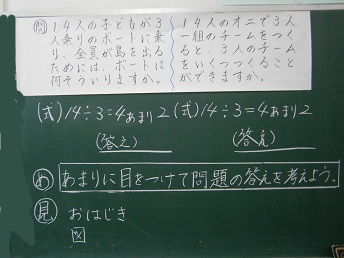 問
14人の子どもが3
人乗りのボートに乗
り、全員が島を出る
ためには、ボートは
何そういりますか。
14人のオニで3人
一組のチームをつく
ると、3人のチーム
をいくつつくること
ができますか。
(式)14÷3=4あまり2
(答え)
(式)14÷3=4あまり2
(答え)
め あまりに目をつけて問題の答えを考えよう。
見 おはじき
図